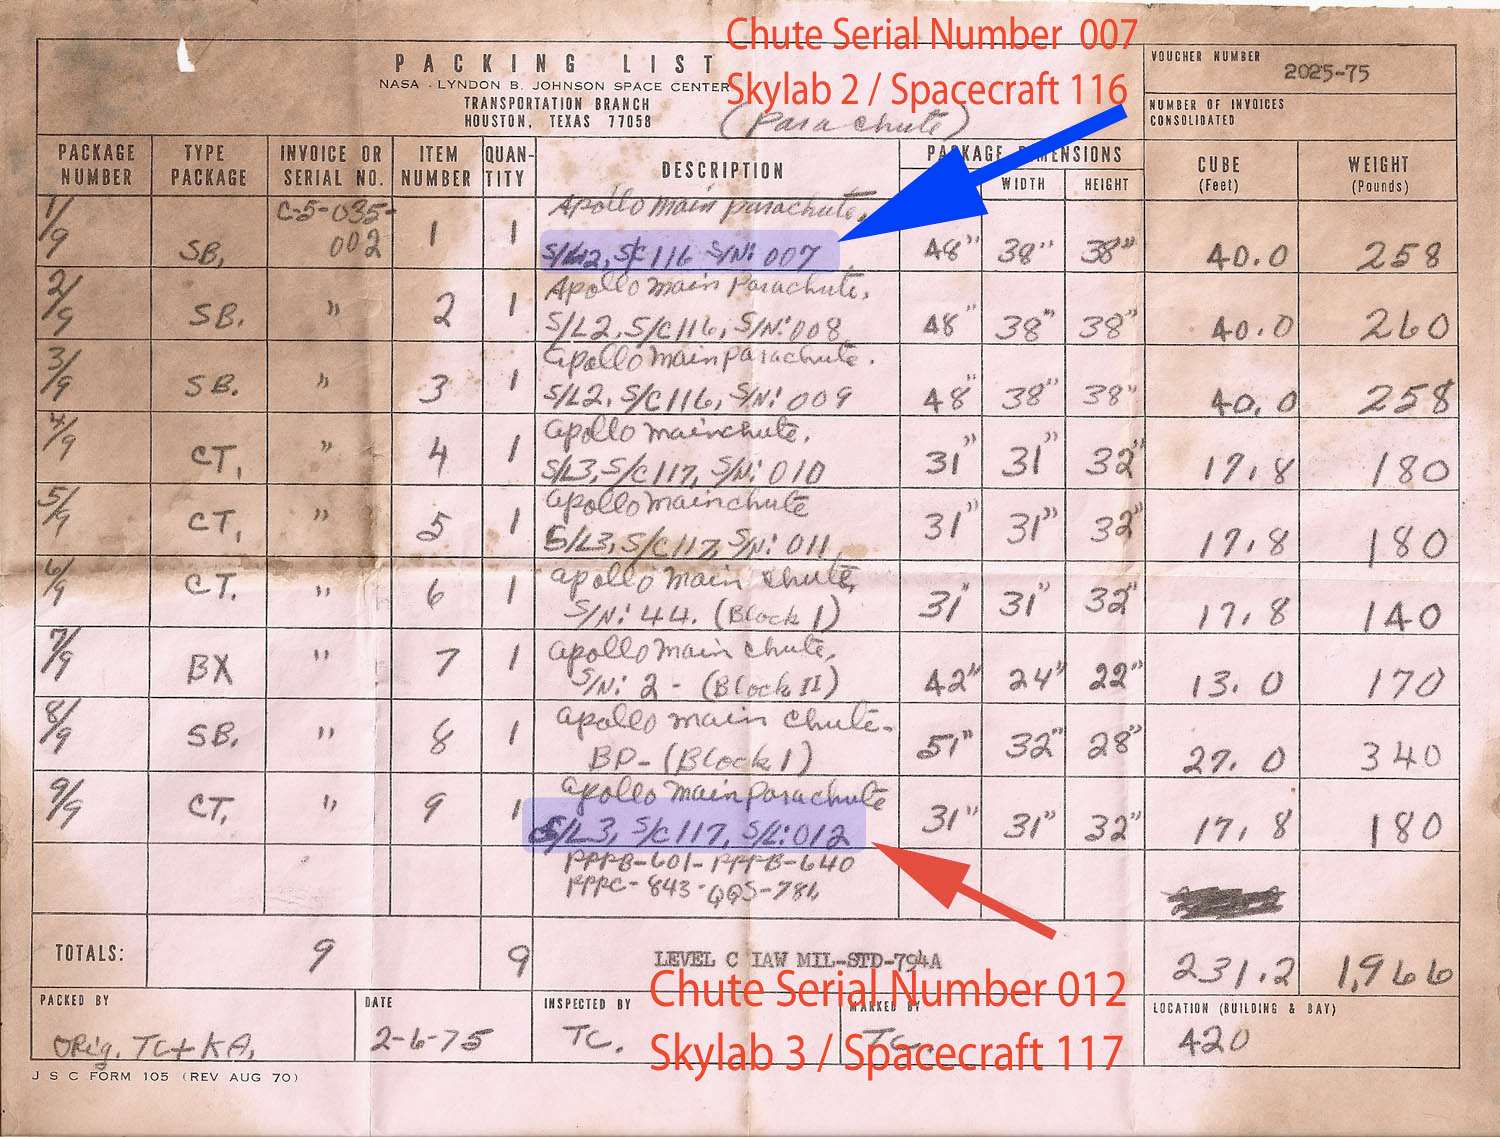 Chute Serial Number 007
Skylab 2 / Spacecraft 116
PACKING LIST
NASA - LYNDON B. JOHNSON SPACE CENTER
TRANSPORTATION BRANCH
HOUSTON, TEXAS 77058
(Parachute)
VOUCHER NUMBER
2025-75
NUMBER OF INVOICES
CONSOLIDATED
PACKAGE NUMBER TYPE PACKAGE INVOICE OR SERIAL NO. ITEM NUMBER QUAN-TITY DESCRIPTION PACKAGE DIMENSIONS WIDTH HEIGHT CUBE (Feet) WEIGHT (Pounds)
1/9 SB, C-5-035-002 1 1 Apollo main parachute,
S/L2, S/C 116 S/N: 007 48" 38" 38" 40.0 258
2/9 SB. " 2 1 Apollo main Parachute,
S/L2, S/C116, S/N: 008 48" 38" 38" 40.0 260
3/9 SB. " 3 1 apollo main parachute.
S/L2, S/C116, S/N: 009 48" 38" 38" 40.0 258
4/9 CT, " 4 1 apollo mainchute,
S/L3, S/C117, S/N: 010 31" 31" 32" 17.8 180
5/9 CT, " 5 1 apollo mainchute
S/L3, S/C117, S/N: 011 31" 31" 32" 17.8 180
6/9 CT. " 6 1 apollo main chute,
S/N: 44. (Block I) 31" 31" 32" 17.8 140
7/9 BX " 7 1 apollo main chute,
S/N: 2 - (Block II) 42" 24" 22" 13.0 170
8/9 SB. " 8 1 apollo main chute-
BP- (Block I) 51" 32" 28" 27.0 340
9/9 CT, " 9 1 apollo main parachute
S/L3, S/C117, S/L: 012 31" 31" 32" 17.8 180
PPPB-601-PPPB-640
PPPC-843-QQS-781
TOTALS: 9 9 LEVEL C IAW MIL-STD-794A 231.2 1,966
Chute Serial Number 012
Skylab 3 / Spacecraft 117
PACKED BY DATE INSPECTED BY MARKED BY LOCATION (BUILDING & BAY)
Orig. TC+KA. 2-6-75 TC. TC. 420
JSC FORM 105 (REV AUG 70)